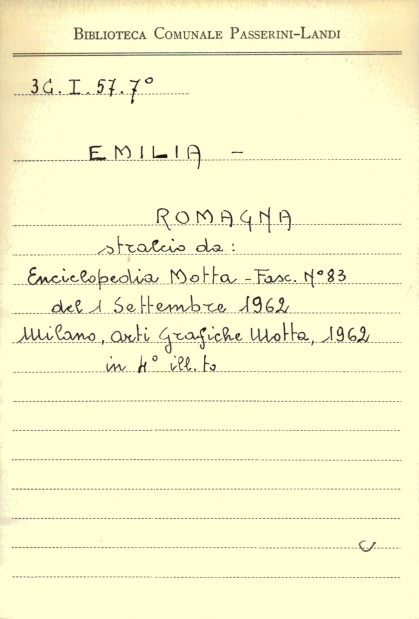 BIBLIOTECA COMUNALE PASSERINI-LANDI
3G.I.57.7°
EMILIA -
ROMAGNA
stralcio da:
Enciclopedia Motta - Fasc. N° 83
del 1 Settembre 1962
Milano, arti Grafiche Motta, 1962
in 4° ill.to
C